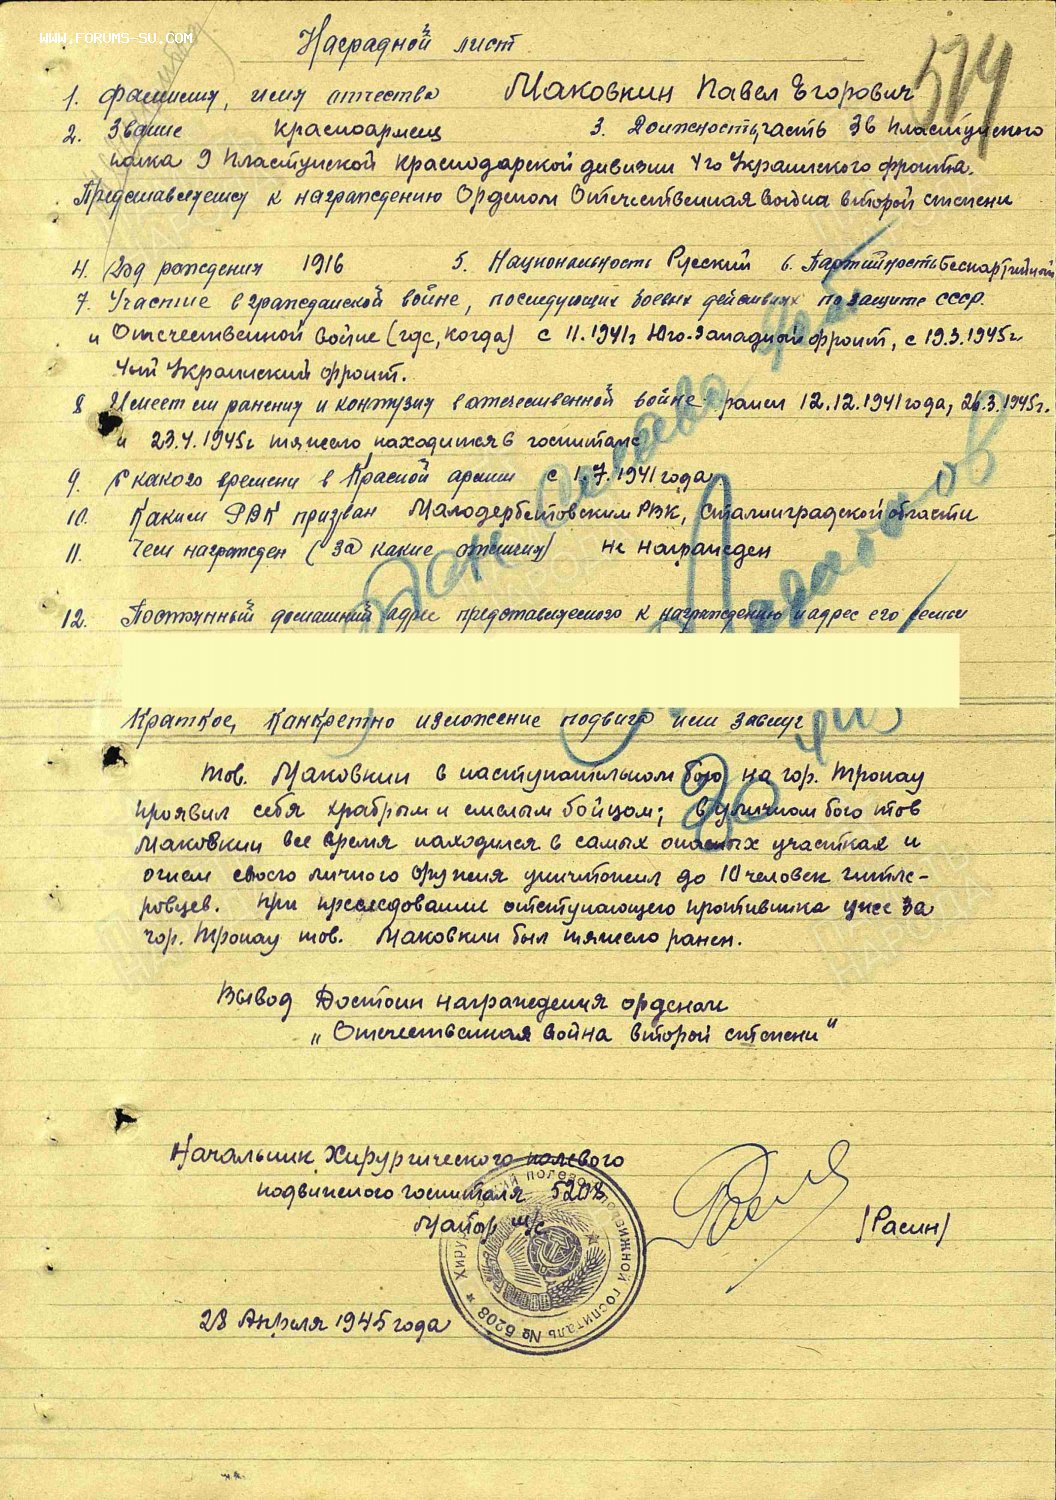 WWW.FORUMS-SU.COM
Наградной лист
574
1. Фамилия, имя отчество Маковкин Павел Егорович
2. Звание Красноармеец 3. Должность, часть 36 Пластунского
полка 9 Пластунской Краснодарской дивизии 4го Украинского фронта.
Представляется к награждению Орденом Отечественная война второй степени
4. Год рождения 1916 5. Национальность Русский 6. Партийность Беспартийный
7. Участие в гражданской войне, последующих боевых действиях по защите СССР
и Отечественной войне (где, когда) с 11.1941г Юго-Западный фронт, с 19.3.1945г.
4ый Украинский фронт.
8 Имеет ли ранения и контузии в отечественной войне ранен 12.12.1941 года, 26.3.1945г.
и 23.4.1945г тяжело находится в госпитале
9. С какого времени в Красной армии с 1.7.1941 года
10. Каким РВК призван Малодербетовским РВК, Сталинградской области
11. Чем награжден (за какие отличия) не награжден
12. Постоянный домашний адрес представляемого к награждению и адрес его семьи
Краткое, Канкретно изложение подвига или заслуг
тов. Маковкин в наступательном бою на гор. Тропау
проявил себя храбрым и смелым бойцом; в уличном бою тов
Маковкин все время находился в самых опасных участках и
огнем своего личного оружия уничтожил до 10 человек гитле-
ровцев. При преследовании отступающего противника уже за
гор. Тропау тов. Маковкин был тяжело ранен.
Вывод Достоин награждения орденом
„Отечественная война второй степени"
Начальник Хирургического полевого
подвижного госпиталя 5208
Майор м/с
(Расин)
Хирургический полевой подвижной госпиталь № 5208
28 Апреля 1945 года